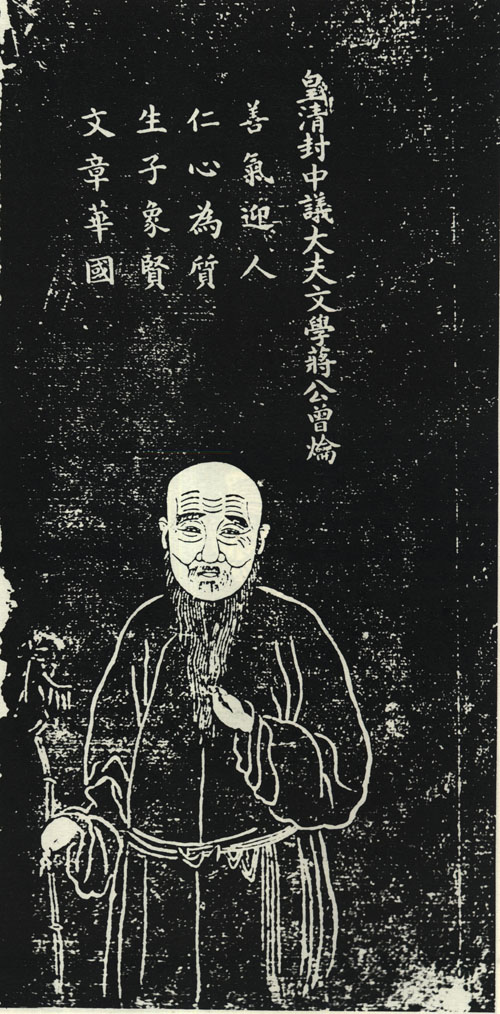 皇清封中議大夫文學蔣公曾
善氣迎人
仁心為質
生子象賢
文章華國